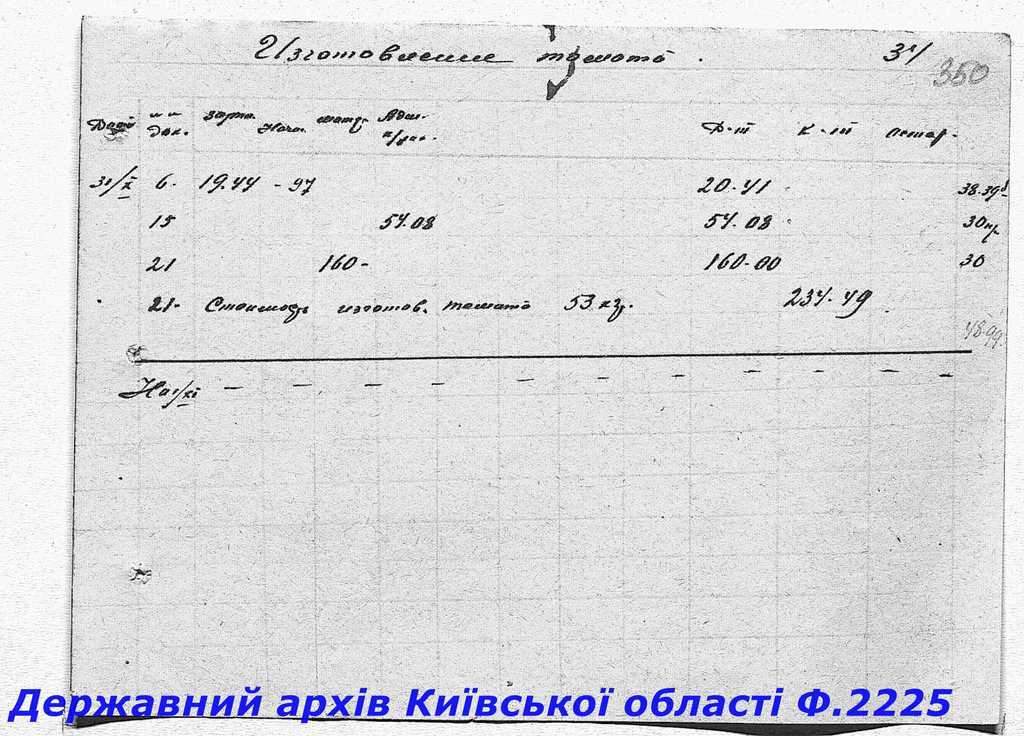 Изготовление томата. 31
350
Дата № № док. зарп. Начис. матер. Адм. х/рас. Д-т К-т остат.
31/X 6. 19.44 - 97 20.41 38.39
15 54.08 54.08 30 кр
21 160- 160-00 30
21- Стоимость изготов. томата 53 кг. 234.49
48.99
На 1/XI – – – – – – – – – – –
Державний архів Київської області Ф.2225